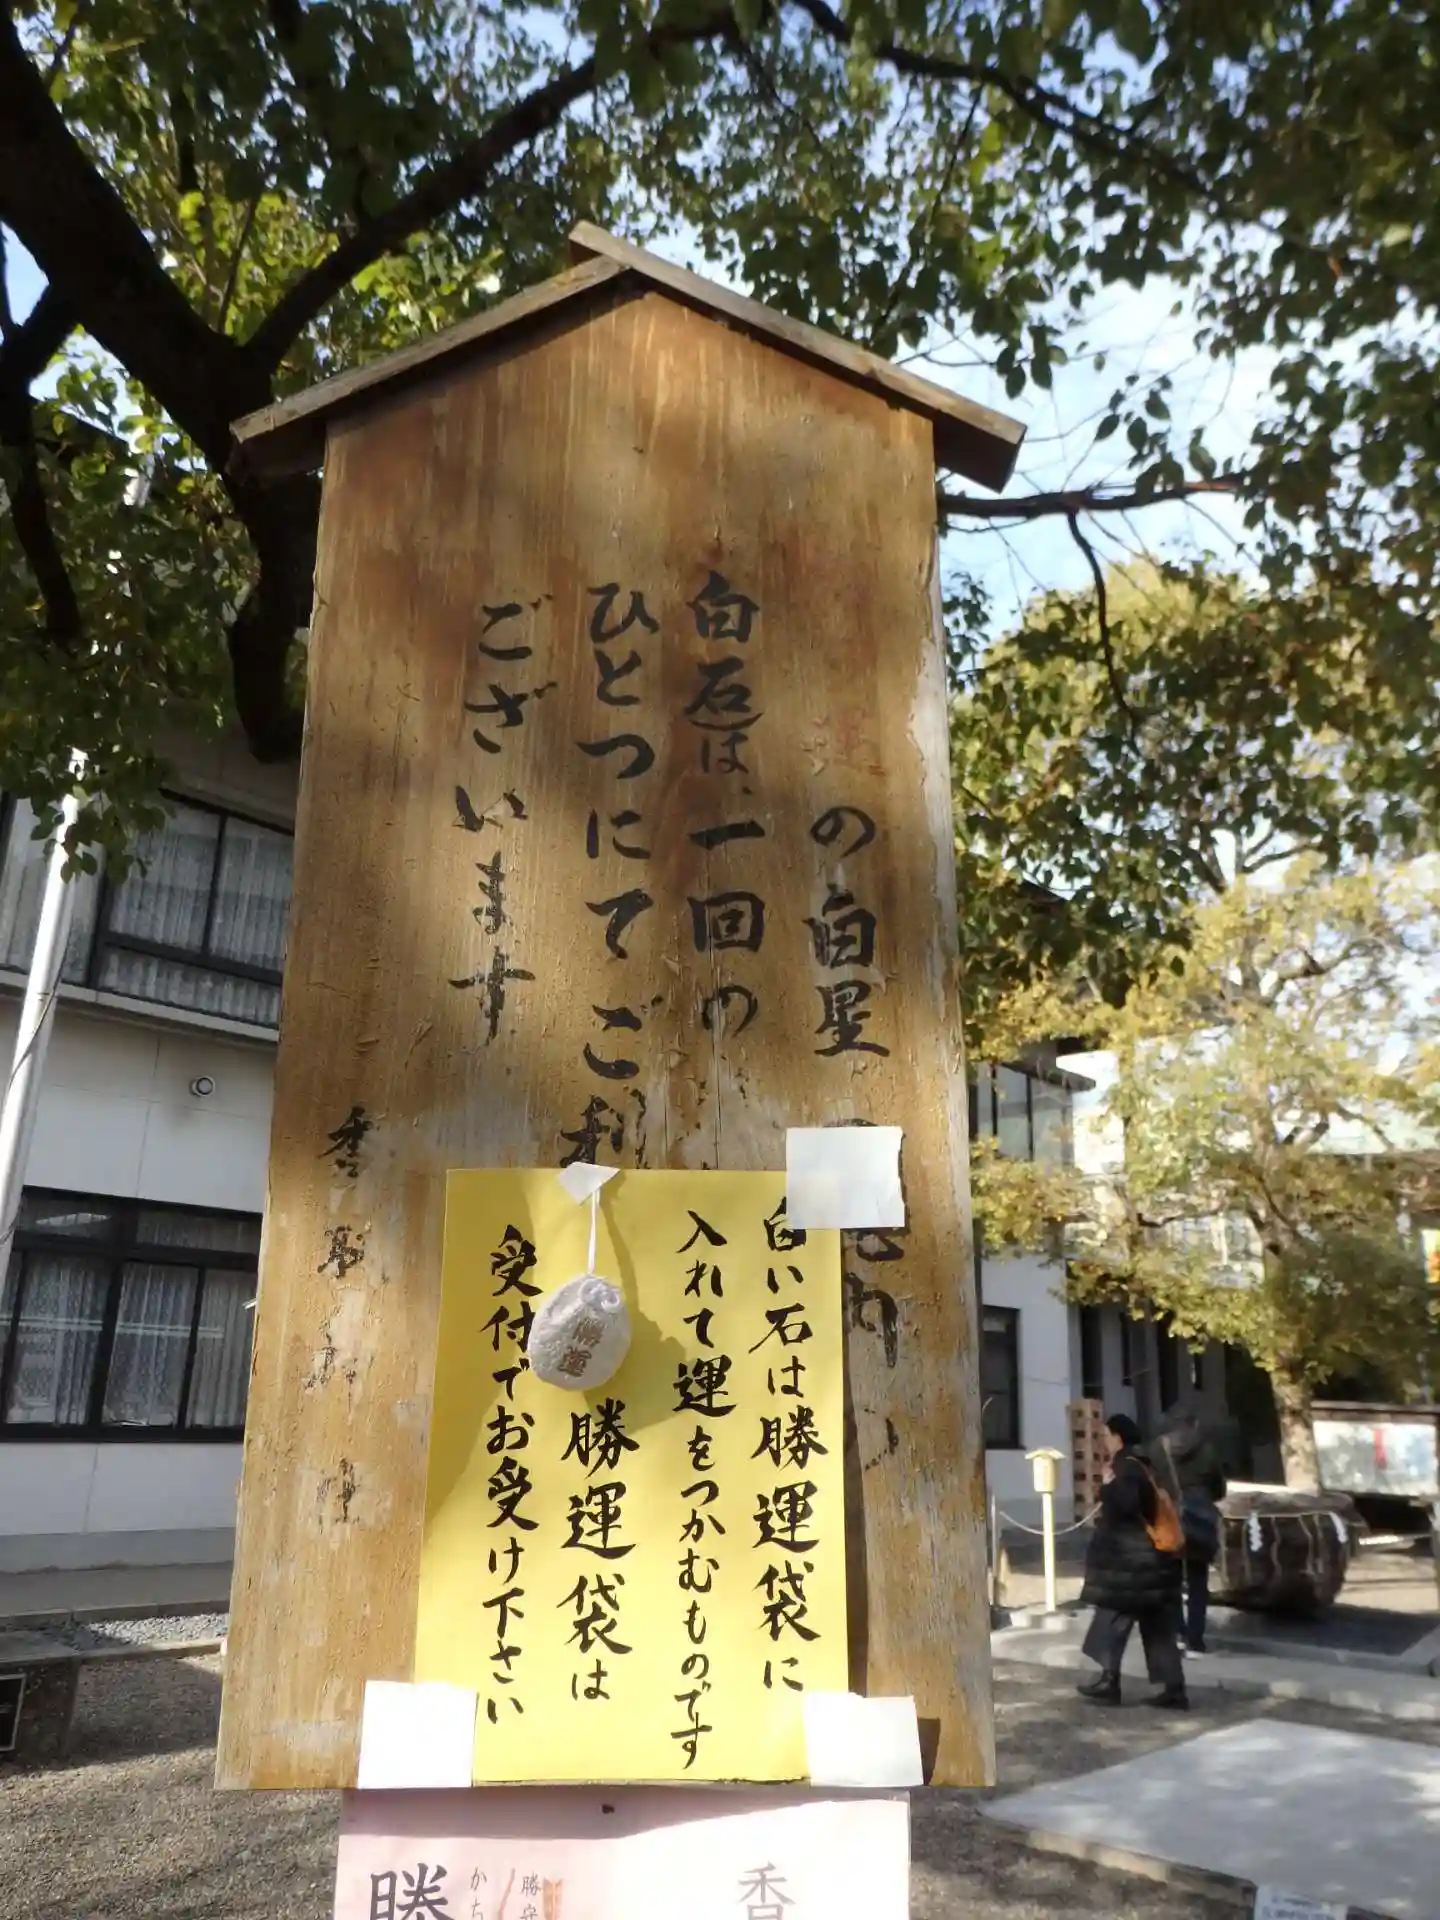 の白星
白石は、一回の
ひとつにてご利
ございます
香取神社
白い石は勝運袋に
入れて運をつかむものです
勝運袋は
受付でお受け下さい
勝運
香
勝守
かち
勝